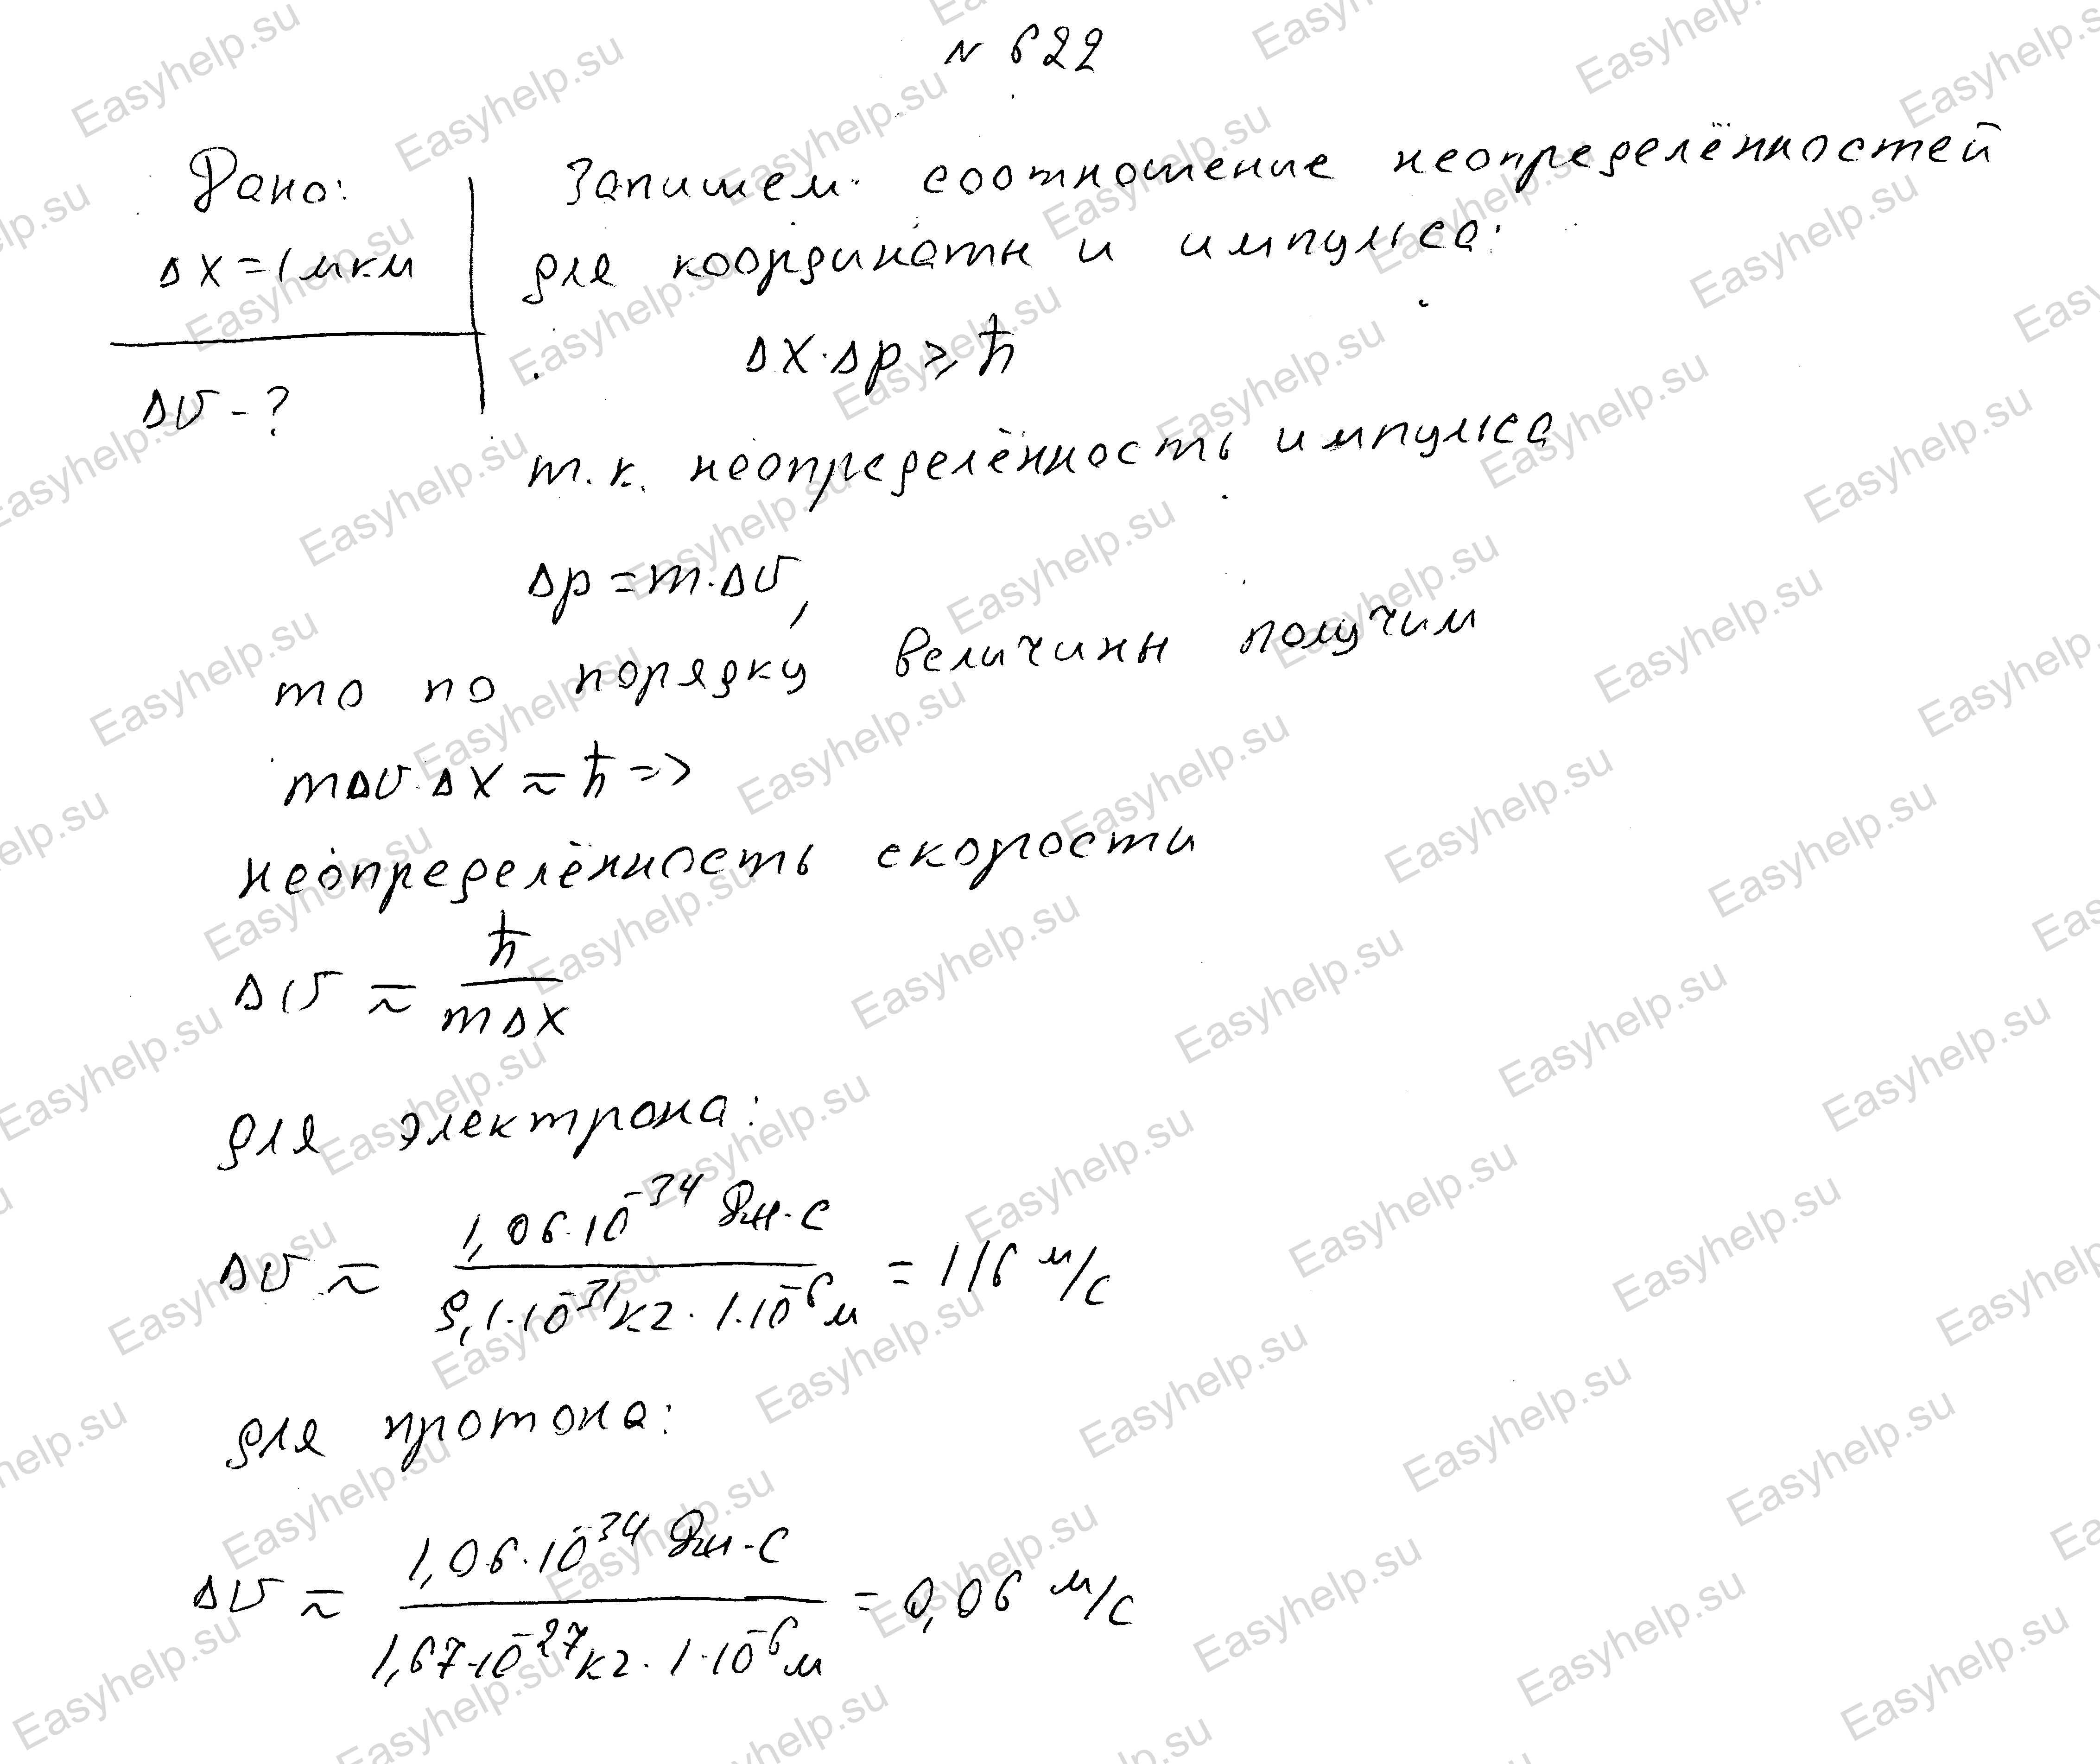 N 622
Дано:
Δx = 1 мкм
Δυ - ?
Запишем соотношение неопределённостей
для координаты и импульса:
Δx·Δp ≥ ħ
т.к. неопределённость импульса
Δp = m·Δυ,
то по порядку величины получим
mΔυ·Δx ≈ ħ =>
неопределённость скорости
Δυ ≈ ħ / mΔx
для электрона:
Δυ ≈ 1,06·10⁻³⁴ Дж·с / 9,1·10⁻³¹ кг · 1·10⁻⁶ м = 116 м/с
для протона:
Δυ ≈ 1,06·10⁻³⁴ Дж·с / 1,67·10⁻²⁷ кг · 1·10⁻⁶ м = 0,06 м/с
Easyhelp.su